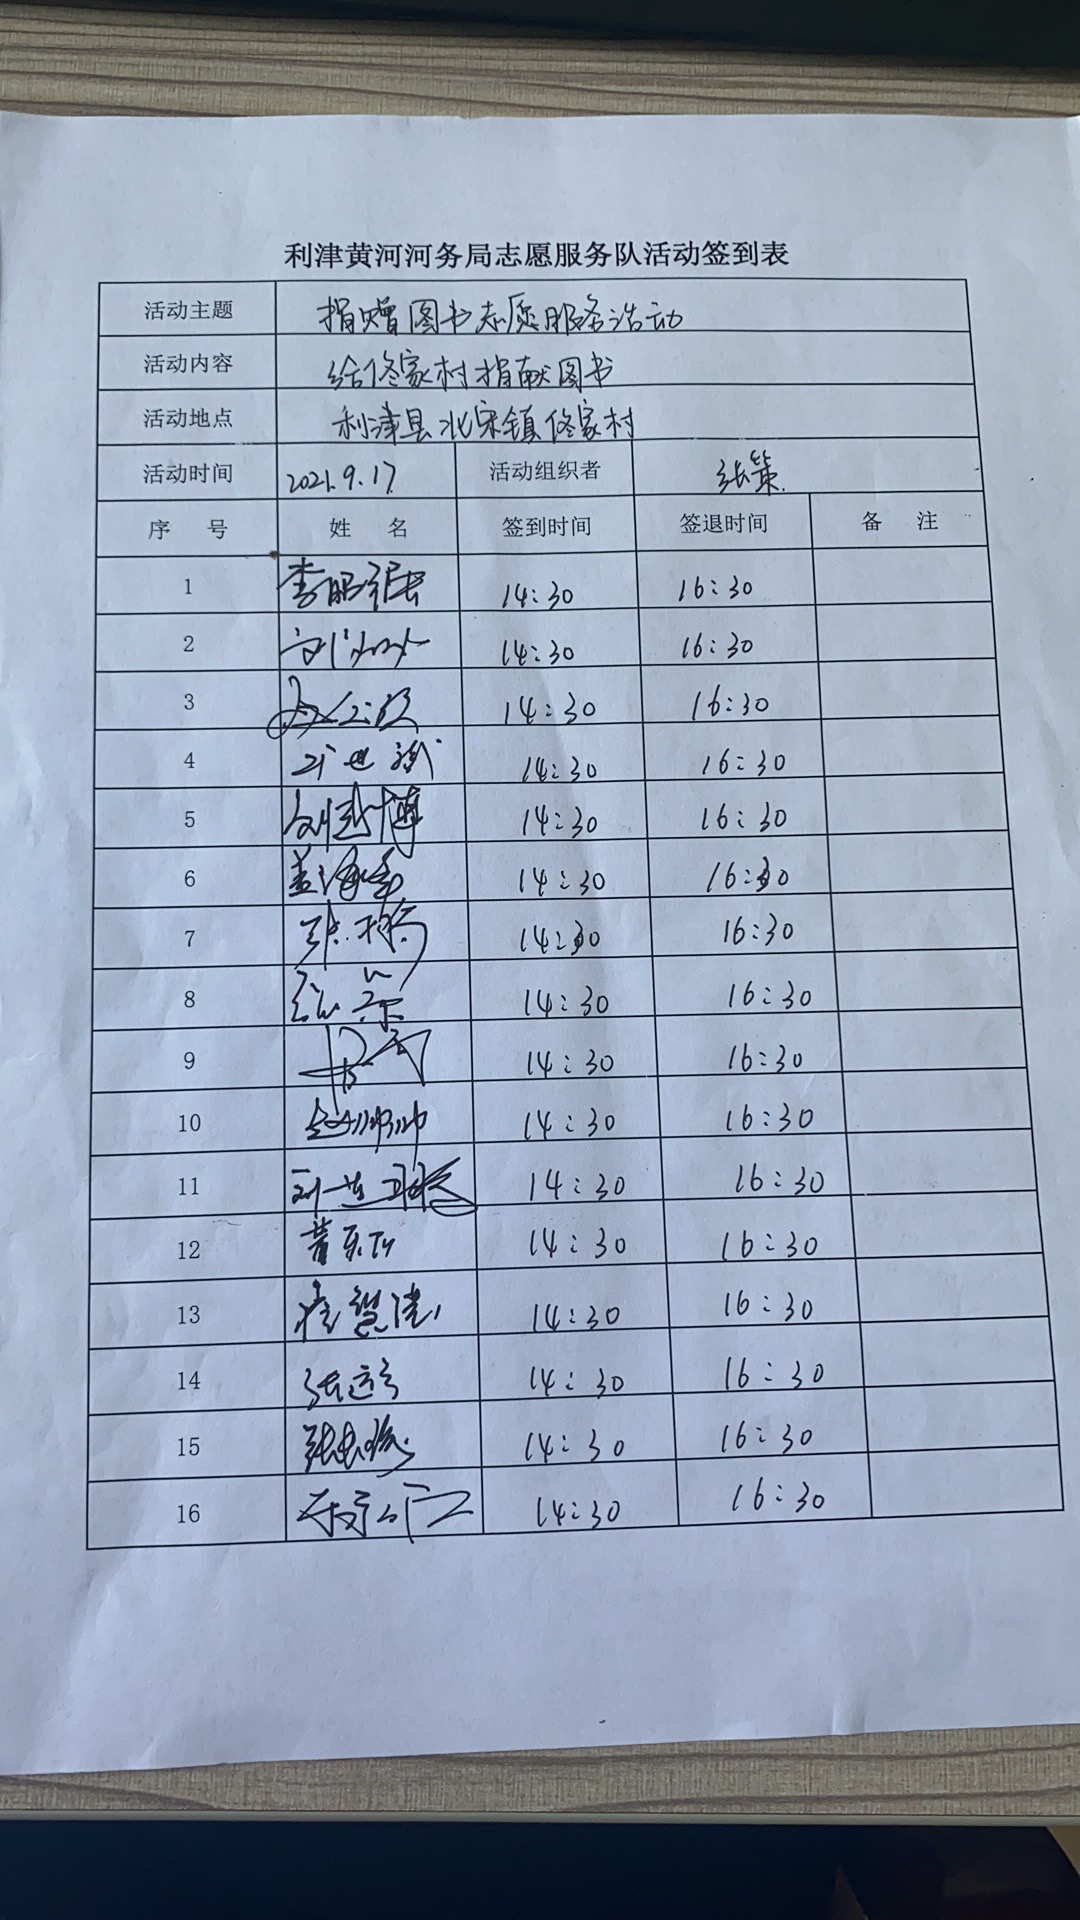 利津黄河河务局志愿服务队活动签到表
活动主题 捐赠图书志愿服务活动
活动内容 给佟家村捐献图书
活动地点 利津县北宋镇佟家村
活动时间 2021.9.17 活动组织者 张策
序 号 姓 名 签到时间 签退时间 备 注
1 14:30 16:30
2 14:30 16:30
3 14:30 16:30
4 14:30 16:30
5 14:30 16:30
6 14:30 16:30
7 14:30 16:30
8 14:30 16:30
9 14:30 16:30
10 14:30 16:30
11 14:30 16:30
12 14:30 16:30
13 14:30 16:30
14 14:30 16:30
15 14:30 16:30
16 14:30 16:30